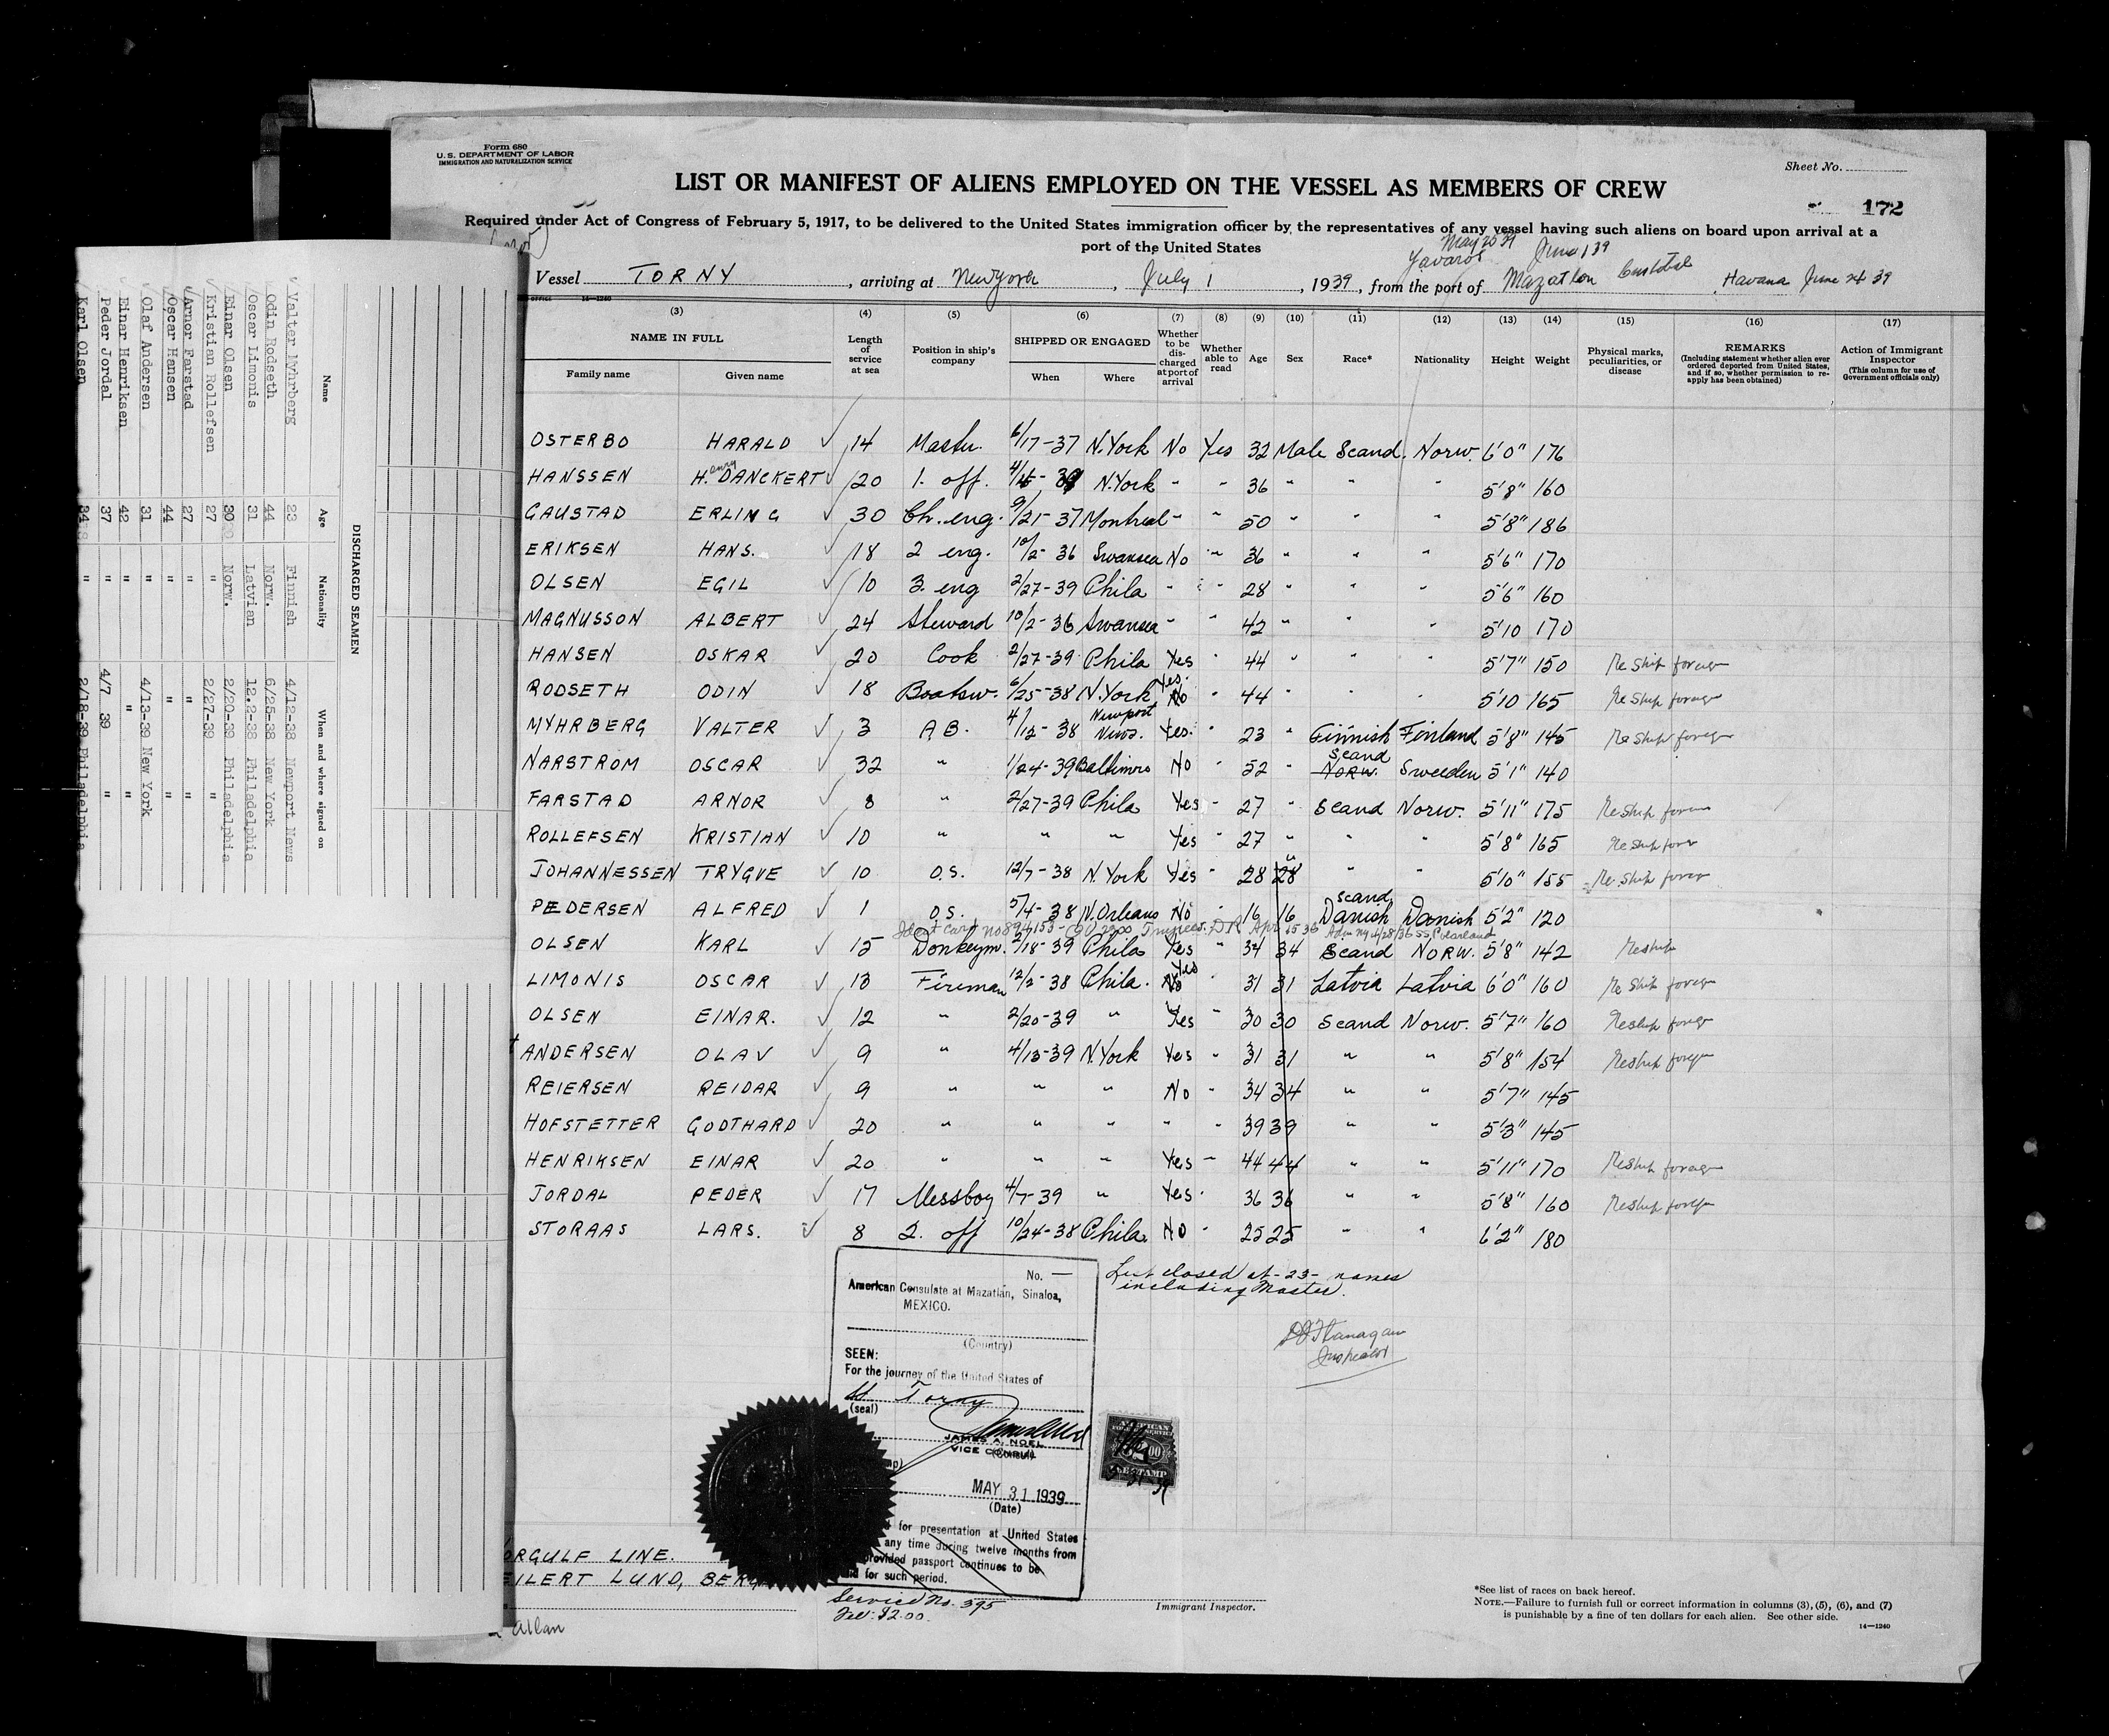 Form 680
U. S. DEPARTMENT OF LABOR
IMMIGRATION AND NATURALIZATION SERVICE
Sheet No.
LIST OR MANIFEST OF ALIENS EMPLOYED ON THE VESSEL AS MEMBERS OF CREW
172
Required under Act of Congress of February 5, 1917, to be delivered to the United States immigration officer by the representatives of any vessel having such aliens on board upon arrival at a
port of the United States
May 25 39
Yavaros June 1 39
Vessel TORNY, arriving at New York, July 1, 1939, from the port of Mazatlan Havana June 24 39
14—1240
(3) (4) (5) (6) (7) (8) (9) (10) (11) (12) (13) (14) (15) (16) (17)
NAME IN FULL
Family name Given name
Length of service at sea
Position in ship's company
SHIPPED OR ENGAGED
When Where
Whether to be discharged at port of arrival
Whether able to read
Age
Sex
Race*
Nationality
Height
Weight
Physical marks, peculiarities, or disease
REMARKS
(Including statement whether alien ever ordered deported from United States, and if so, whether permission to reapply has been obtained)
Action of Immigrant Inspector
(This column for use of Government officials only)
OSTERBO HARALD ✓ 14 Master. 6/17-37 N.York No Yes 32 Male Scand. Norw. 6'0" 176
HANSSEN H.enry DANCKERT ✓ 20 1. off. 4/ - 39 N.York " " 36 " " " 5'8" 160
GAUSTAD ERLING ✓ 30 Ch. eng. 9/21-37 Montreal " " 50 " " " 5'8" 186
ERIKSEN HANS. ✓ 18 2 eng. 10/2-36 Swansea No " 36 " " " 5'6" 170
OLSEN EGIL ✓ 10 3. eng 2/27-39 Phila " " 28 " " " 5'6" 160
MAGNUSSON ALBERT ✓ 24 Steward 10/2-36 Swansea " " 42 " " " 5'10 170
HANSEN OSKAR ✓ 20 Cook 2/27-39 Phila Yes " 44 " " " 5'7" 150 Reship foreign
RODSETH ODIN ✓ 18 Boatsw. 6/25-38 N.York Yes. No " 44 " " " 5'10 165 Reship foreign
MYHRBERG VALTER ✓ 3 A B. 4/12-38 Newport News. Yes. " 23 " Finnish Finland 5'8" 145 Reship foreign
NARSTROM OSCAR ✓ 32 " 1/24-39 Baltimore No " 52 " Scand NORW. Sweeden 5'1" 140
FARSTAD ARNOR ✓ 8 " 2/27-39 Phila Yes " 27 " Scand Norw. 5'11" 175 Reship foreign
ROLLEFSEN KRISTIAN ✓ 10 " " " Yes " 27 " " " 5'8" 165 Reship foreign
JOHANNESSEN TRYGVE ✓ 10 O.S. 12/7-38 N.York Yes " 28 28 " " " 5'10" 155 Reship foreign
PEDERSEN ALFRED ✓ 1 O.S. 5/4-38 N.Orleans No " 16 16 Scand. Danish Danish 5'2" 120
Ident card no 894153
OLSEN KARL ✓ 15 Donkeym. 2/18-39 Phila Yes " 34 34 Scand NORW. 5'8" 142 Reship
LIMONIS OSCAR ✓ 13 Fireman 12/2-38 Phila. Yes No " 31 31 Latvia Latvia 6'0" 160 Reship foreign
OLSEN EINAR. ✓ 12 " 2/20-39 " Yes " 30 30 Scand Norw. 5'7" 160 Reship foreign
+ ANDERSEN OLAV ✓ 9 " 4/13-39 N.York Yes " 31 31 " " 5'8" 154 Reship foreign
REIERSEN REIDAR ✓ 9 " " " No " 34 34 " " 5'7" 145
HOFSTETTER GODTHARD ✓ 20 " " " " " 39 39 " " 5'3" 145
HENRIKSEN EINAR ✓ 20 " " " Yes " 44 44 " " 5'11" 170 Reship foreign
JORDAL PEDER ✓ 17 Messboy 4/7-39 " Yes " 36 36 " " 5'8" 160 Reship foreign
STORAAS LARS. ✓ 8 2. off 10/24-38 Phila. No " 25 25 " " 6'2" 180
List closed at -23- names
including Master.
Flanagan
Inspector
No. —
American Consulate at Mazatlán, Sinaloa,
MEXICO.
(Country)
SEEN:
For the journey of the United States of
Torny
(seal)
JAMES A. NOEL
VICE CONSUL
(Consul)
MAY 31 1939
(Date)
for presentation at United States
any time during twelve months from
provided passport continues to be
for such period.
Service No. 395
Fee: $2.00.
AMERICAN
FEE STAMP
ORGULF LINE.
EILERT LUND, BERG
Allan
Immigrant Inspector.
*See list of races on back hereof.
NOTE.—Failure to furnish full or correct information in columns (3), (5), (6), and (7)
is punishable by a fine of ten dollars for each alien. See other side.
14—1240
DISCHARGED SEAMEN
Name Age Nationality When and where signed on
Valter Myhrberg 23 Finnish 4/12-38 Newport News
Odin Rodseth 44 Norw. 6/25-38 New York
Oscar Limonis 31 Latvian 12.2-38 Philadelphia
Einar Olsen 30 Norw. 2/20-39 Philadelphia
Kristian Rollefsen 27 " 2/27-39 "
Arnor Farstad 27 " " "
Oscar Hansen 44 " " "
Olaf Andersen 31 " 4/13-39 New York
Einar Henriksen 42 " " "
Peder Jordal 37 " 4/7 39 "
Karl Olsen 34 " 2/18-39 Philadelphia